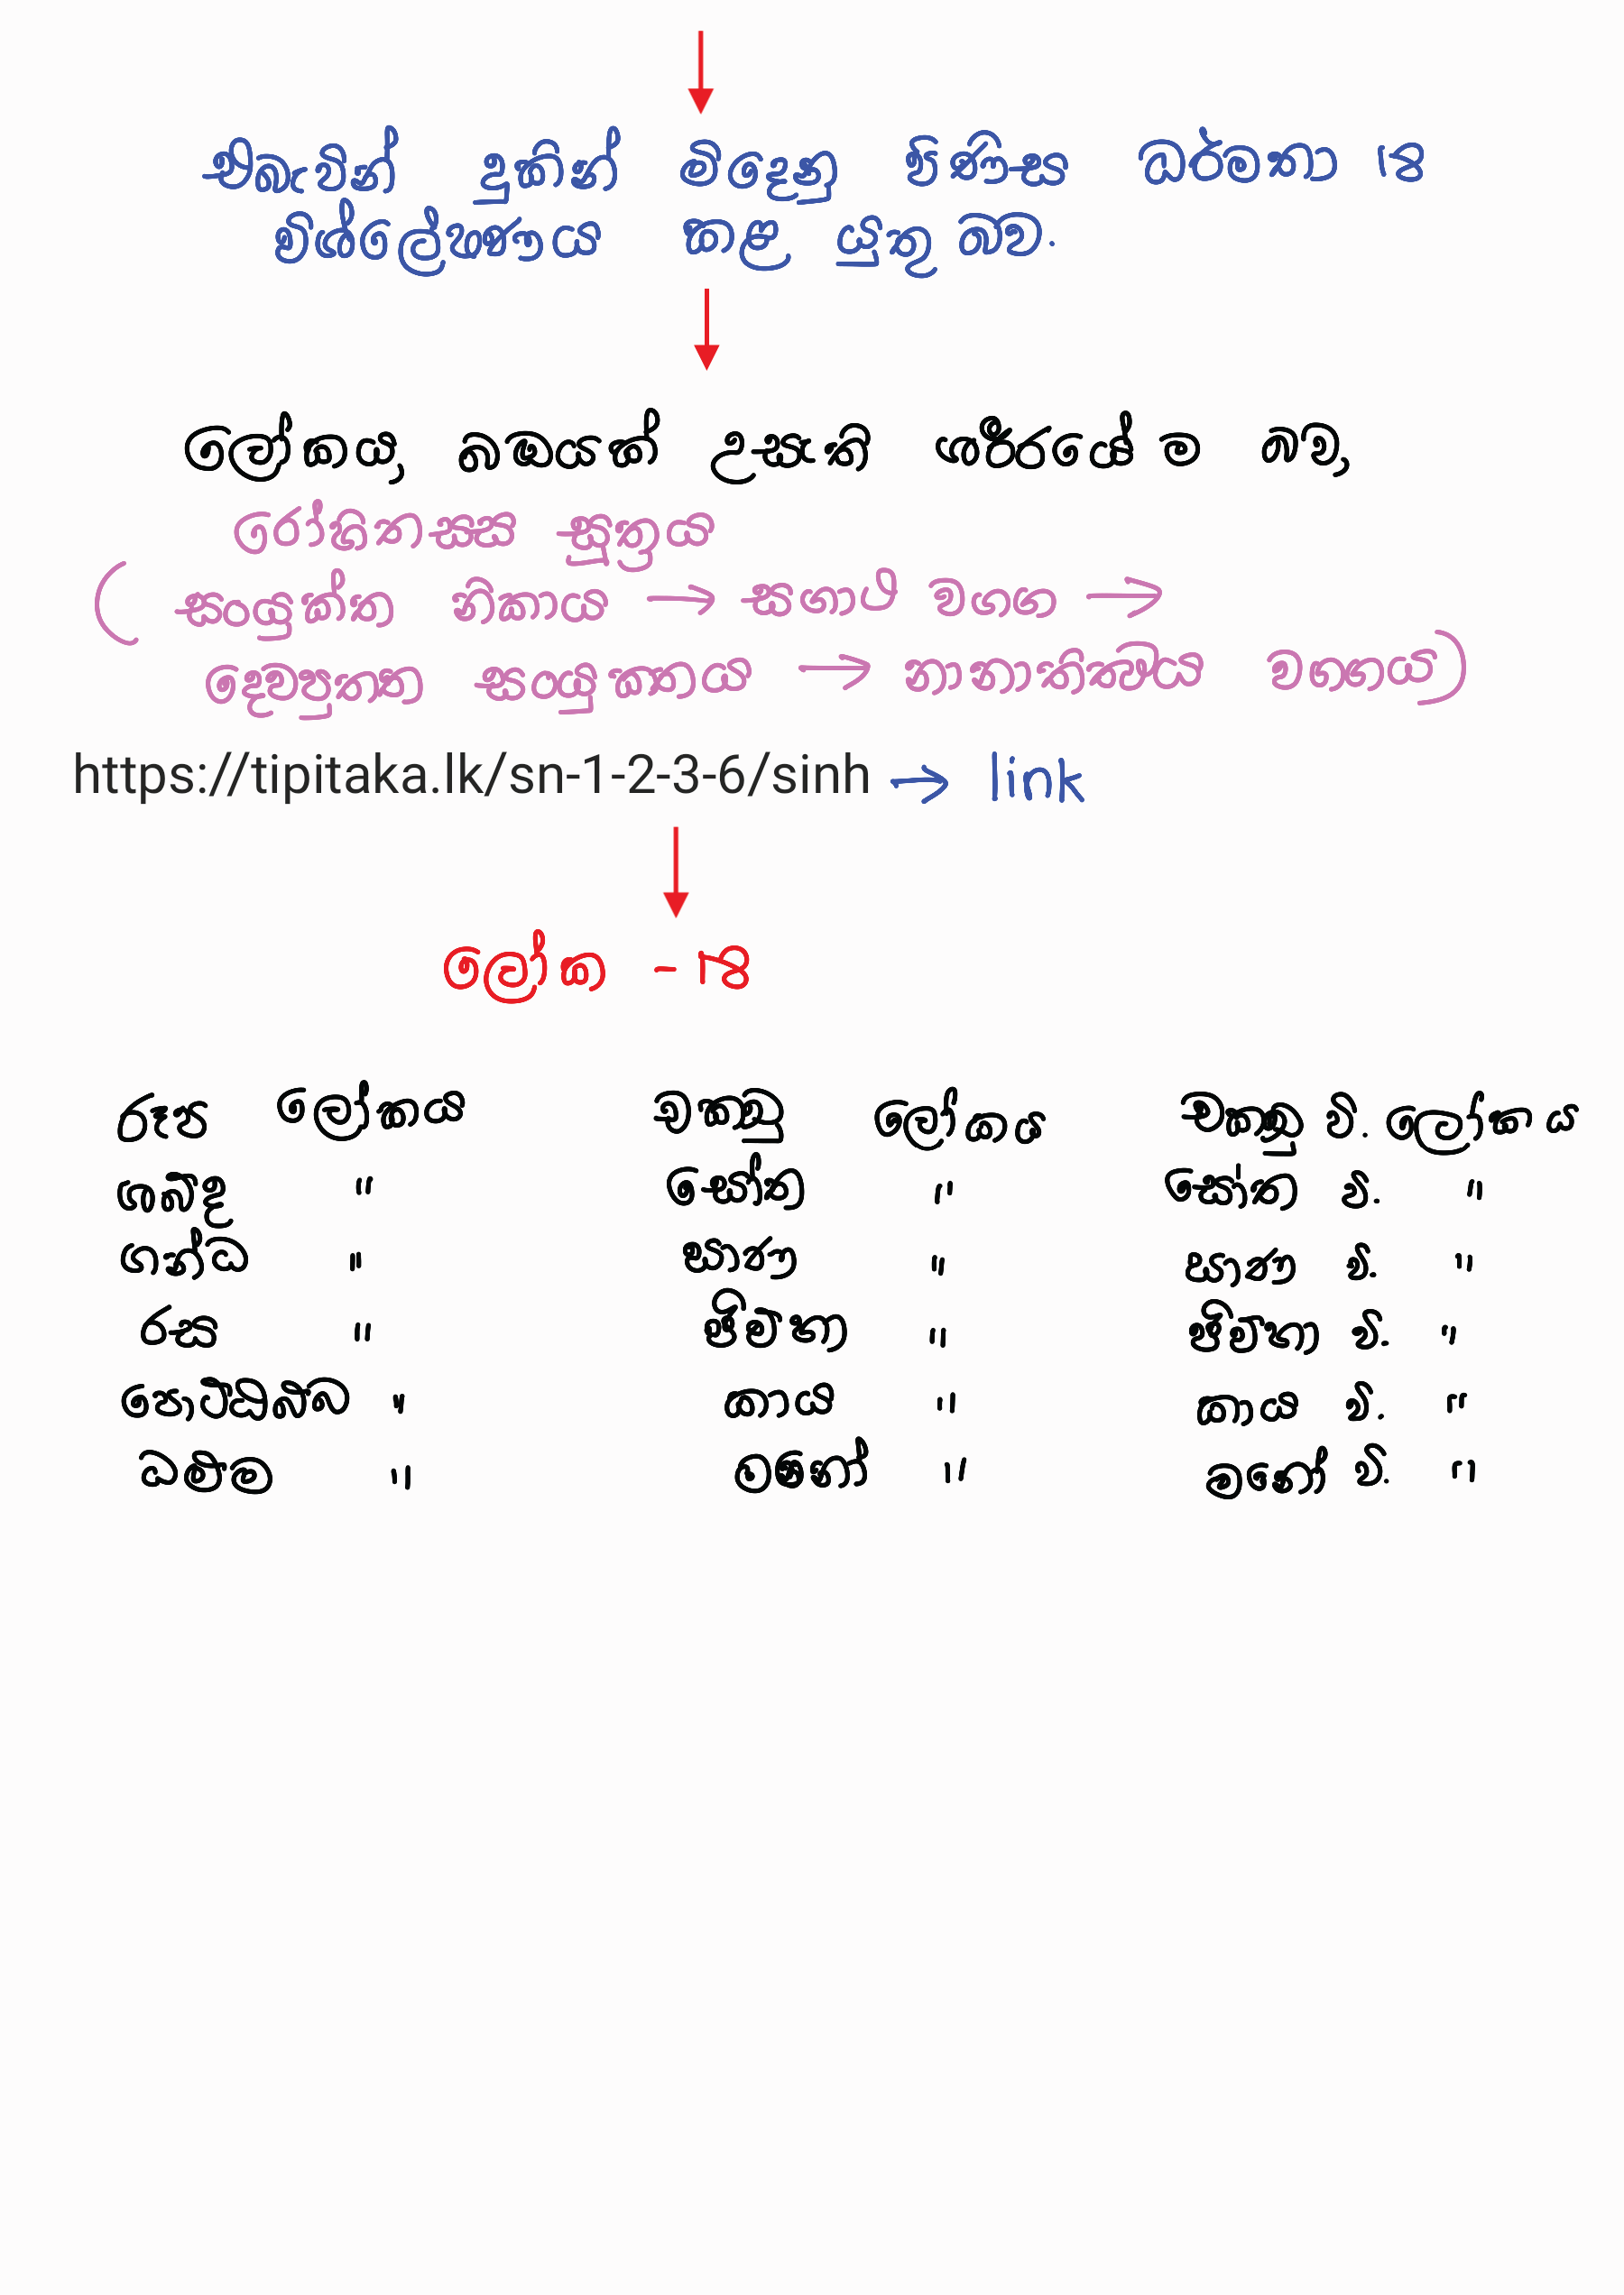 එබැවින් දුකින් මිදෙනු පිණිස ධර්මතා 18
විශ්ලේෂණය කළ යුතු බව.
ලෝකය, බඹයක් උසැති ශරීරයේ ම බව,
රෝහිතස්ස සූත්‍රය
(සංයුක්ත නිකාය → සගාථ වග්ග →
දෙවපුත්ත සංයුක්තය → නානාතිත්ථිය වග්ගය)
https://tipitaka.lk/sn-1-2-3-6/sinh → link
ලෝක - 18
රූප ලෝකය චක්ඛු ලෝකය චක්ඛු වි. ලෝකය
ශබ්ද " සෝත " සෝත වි. "
ගන්ධ " ඝාණ " ඝාණ වි. "
රස " ජිව්හා " ජිව්හා වි. "
පොට්ඨබ්බ " කාය " කාය වි. "
ධම්ම " මනෝ " මනෝ වි. "